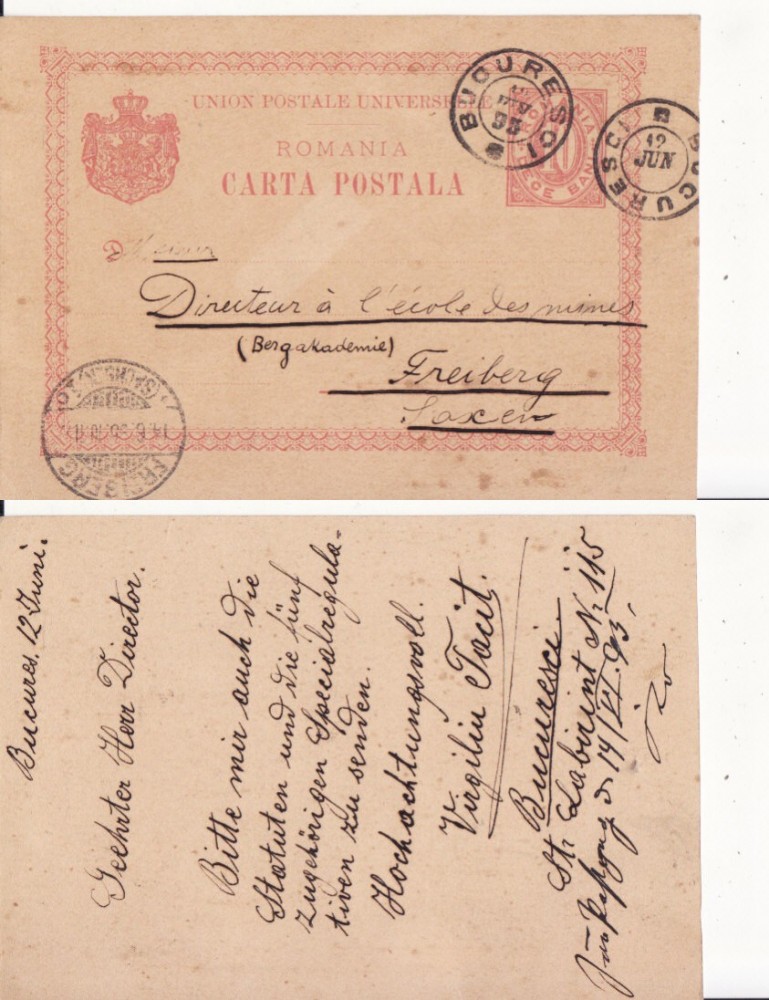 UNION POSTALE UNIVERSELLE
ROMANIA
CARTA POSTALA
ROMANIA
10
BUCURESCI
BUCURESCI
12
JUN
D
Directeur à l'école des mines
(Bergakademie)
Freiberg
Saxen
FREIBERG
Bucures. 12 Juni.
Geehrter Herr Director.
Bitte mir auch die
Statuten und die fünf
zugehörigen Specialregula-
tiven zu senden.
Hochachtungsvoll.
Virgiliu Tacit.
Bucuresci.
Str. Labirint No 115
14/VI.95.